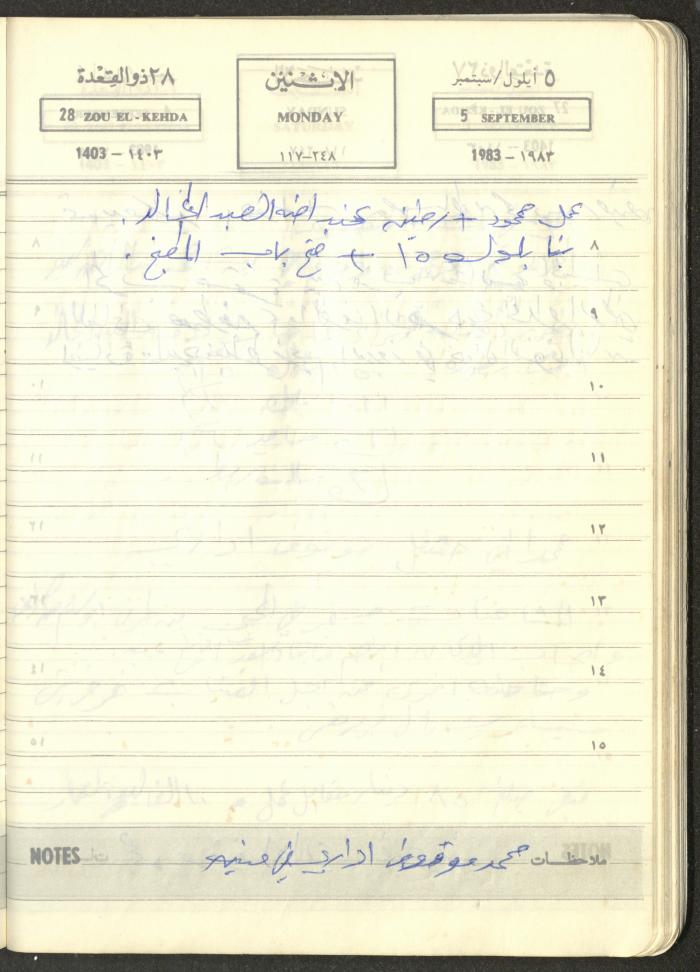 ٢٨ ذو القعدة
28 ZOU EL-KEHDA
1403 - ١٤٠٣
الاثنين
MONDAY
١١٧-٢٤٨
٥ أيلول/سبتمبر
5 SEPTEMBER
1983 - ١٩٨٣
عمل محمود +
بنا بلوك ١٥ + فتح باب المطبخ .
٨
٩
١٠
١١
١٢
١٣
١٤
١٥
ملاحظات محمد موقوف اداري
NOTES